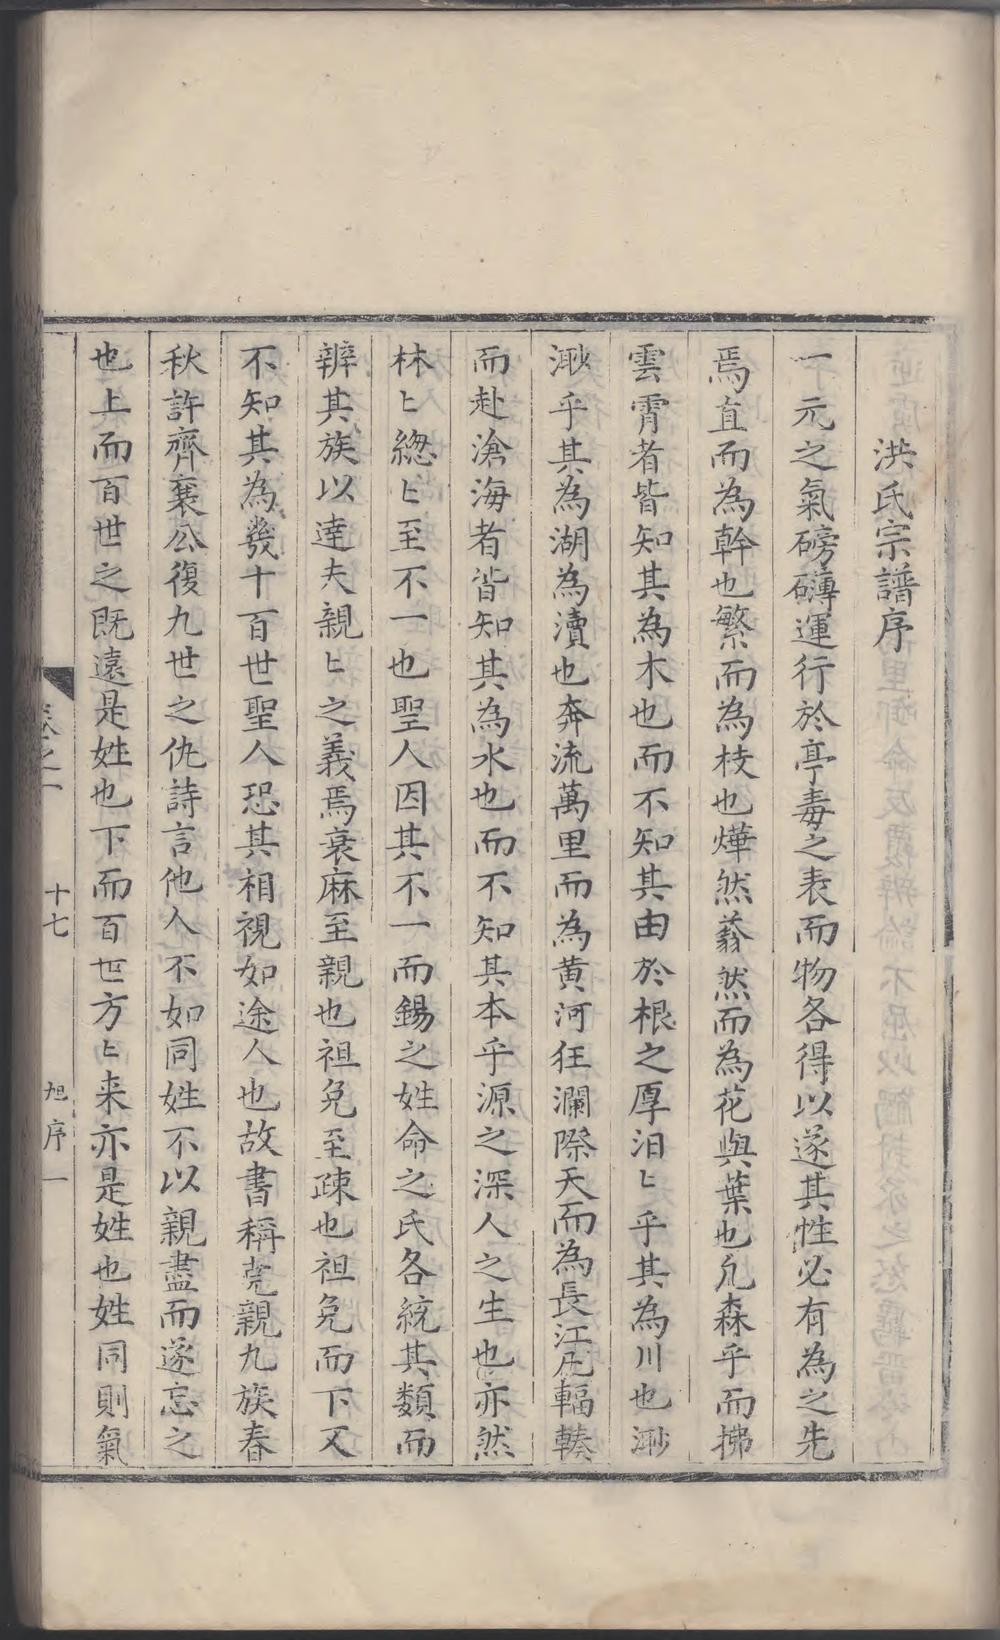 洪氏宗譜序
一元之氣磅礴運行於亭毒之表而物各得以遂其性必有為之先
焉直而為幹也繁而為枝也燁然蓊然而為花與葉也凢森乎而拂
雲霄者皆知其為木也而不知其由於根之厚汩〻乎其為川也渺
渺乎其為湖為瀆也奔流萬里而為黄河狂瀾際天而為長江凢輻輳
而赴滄海者皆知其為水也而不知其本乎源之深人之生也亦然
林〻總〻至不一也聖人因其不一而錫之姓命之氏各統其類而
辨其族以達夫親〻之義焉衰麻至親也袒免至疎也袒免而下又
不知其為幾十百世聖人恐其相視如途人也故書稱堯親九族春
秋許齊襄公復九世之仇詩言他人不如同姓不以親盡而遂忘之
也上而百世之既遠是姓也下而百世方〻来亦是姓也姓同則氣
卷之一
十七
旭序一